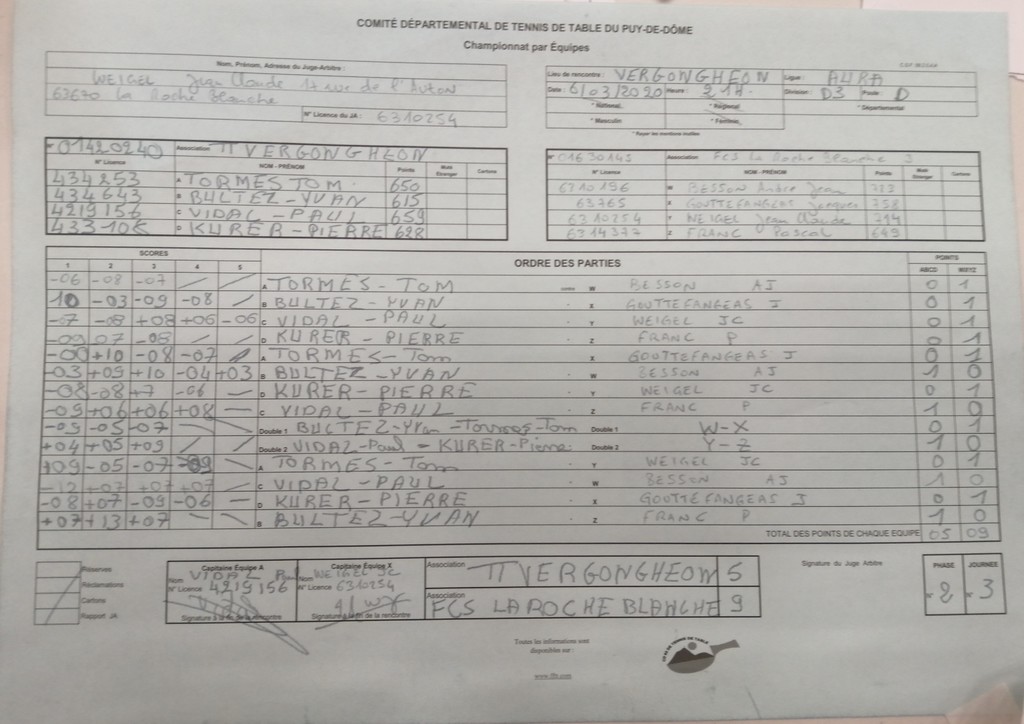 COMITÉ DÉPARTEMENTAL DE TENNIS DE TABLE DU PUY-DE-DÔME
Championnat par Équipes
Nom, Prénom, Adresse du Juge-Arbitre :
WEIGEL Jean Claude 17 rue de l'Auzon
63670 La Roche Blanche
N° Licence du JA : 6310254
Lieu de rencontre : VERGONGHEON Ligue : AURA
Date : 6/03/2020 Heure : 21H. Division : D3 Poule : D
* National * Régional * Départemental
* Masculin * Féminin
* Rayer les mentions inutiles
N° 01420240 Association TT VERGONGHEON
N° Licence NOM - PRÉNOM Points Muté Etranger Cartons
434253 A TORMES TOM 650
434643 B BULTEZ-YVAN 615
4219156 C VIDAL-PAUL 659
433105 D KURER-PIERRE 628
N° 01630145 Association FCS La Roche Blanche
N° Licence NOM - PRÉNOM Points Muté Etranger Cartons
6310196 W BESSON André Jean 713
63765 X GOUTTEFANGEAS Jacques 758
6310254 Y WEIGEL Jean Claude 714
6314377 Z FRANC Pascal 649
SCORES ORDRE DES PARTIES POINTS
1 2 3 4 5 ABCD WXYZ
-06 -08 -07 A TORMES-TOM contre W BESSON AJ 0 1
10 -03 -09 -08 B BULTEZ-YVAN - X GOUTTEFANGEAS J 0 1
-07 -08 +08 +06 -06 C VIDAL-PAUL - Y WEIGEL JC 0 1
-09 07 -08 D KURER-PIERRE - Z FRANC P 0 1
+10 -08 -07 A TORMES-Tom X GOUTTEFANGEAS J 0 1
-03 +09 +10 -04 +03 B BULTEZ-YVAN - W BESSON AJ 1 0
-08 -08 +7 -06 D KURER-PIERRE - Y WEIGEL JC 0 1
-09 +06 +06 +08 C VIDAL-PAUL - Z FRANC P 1 0
-09 -05 -07 Double 1 BULTEZ-Yvan-Tormes-Tom Double 1 W-X 0 1
+04 +05 +09 Double 2 VIDAL-Paul-KURER-Pierre Double 2 Y-Z 1 0
+09 -05 -07 -09 A TORMES-Tom - Y WEIGEL JC 0 1
-12 +07 +07 +07 C VIDAL-PAUL - W BESSON AJ 1 0
-08 +07 -09 -06 D KURER-PIERRE - X GOUTTEFANGEAS J 0 1
+07 +13 +07 B BULTEZ-YVAN - Z FRANC P 1 0
TOTAL DES POINTS DE CHAQUE EQUIPE 05 09
Réserves
Réclamations
Cartons
Rapport JA
Capitaine Équipe A
Nom VIDAL P
N° Licence 4219156
Signature à la fin de la rencontre
Capitaine Équipe X
Nom WEIGEL JC
N° Licence 6310254
Signature à la fin de la rencontre
Association TT VERGONGHEON 5
Association FCS LA ROCHE BLANCHE 9
Signature du Juge Arbitre
PHASE JOURNÉE
N° 2 N° 3
Toutes les informations sont
disponibles sur :
www.fftt.com